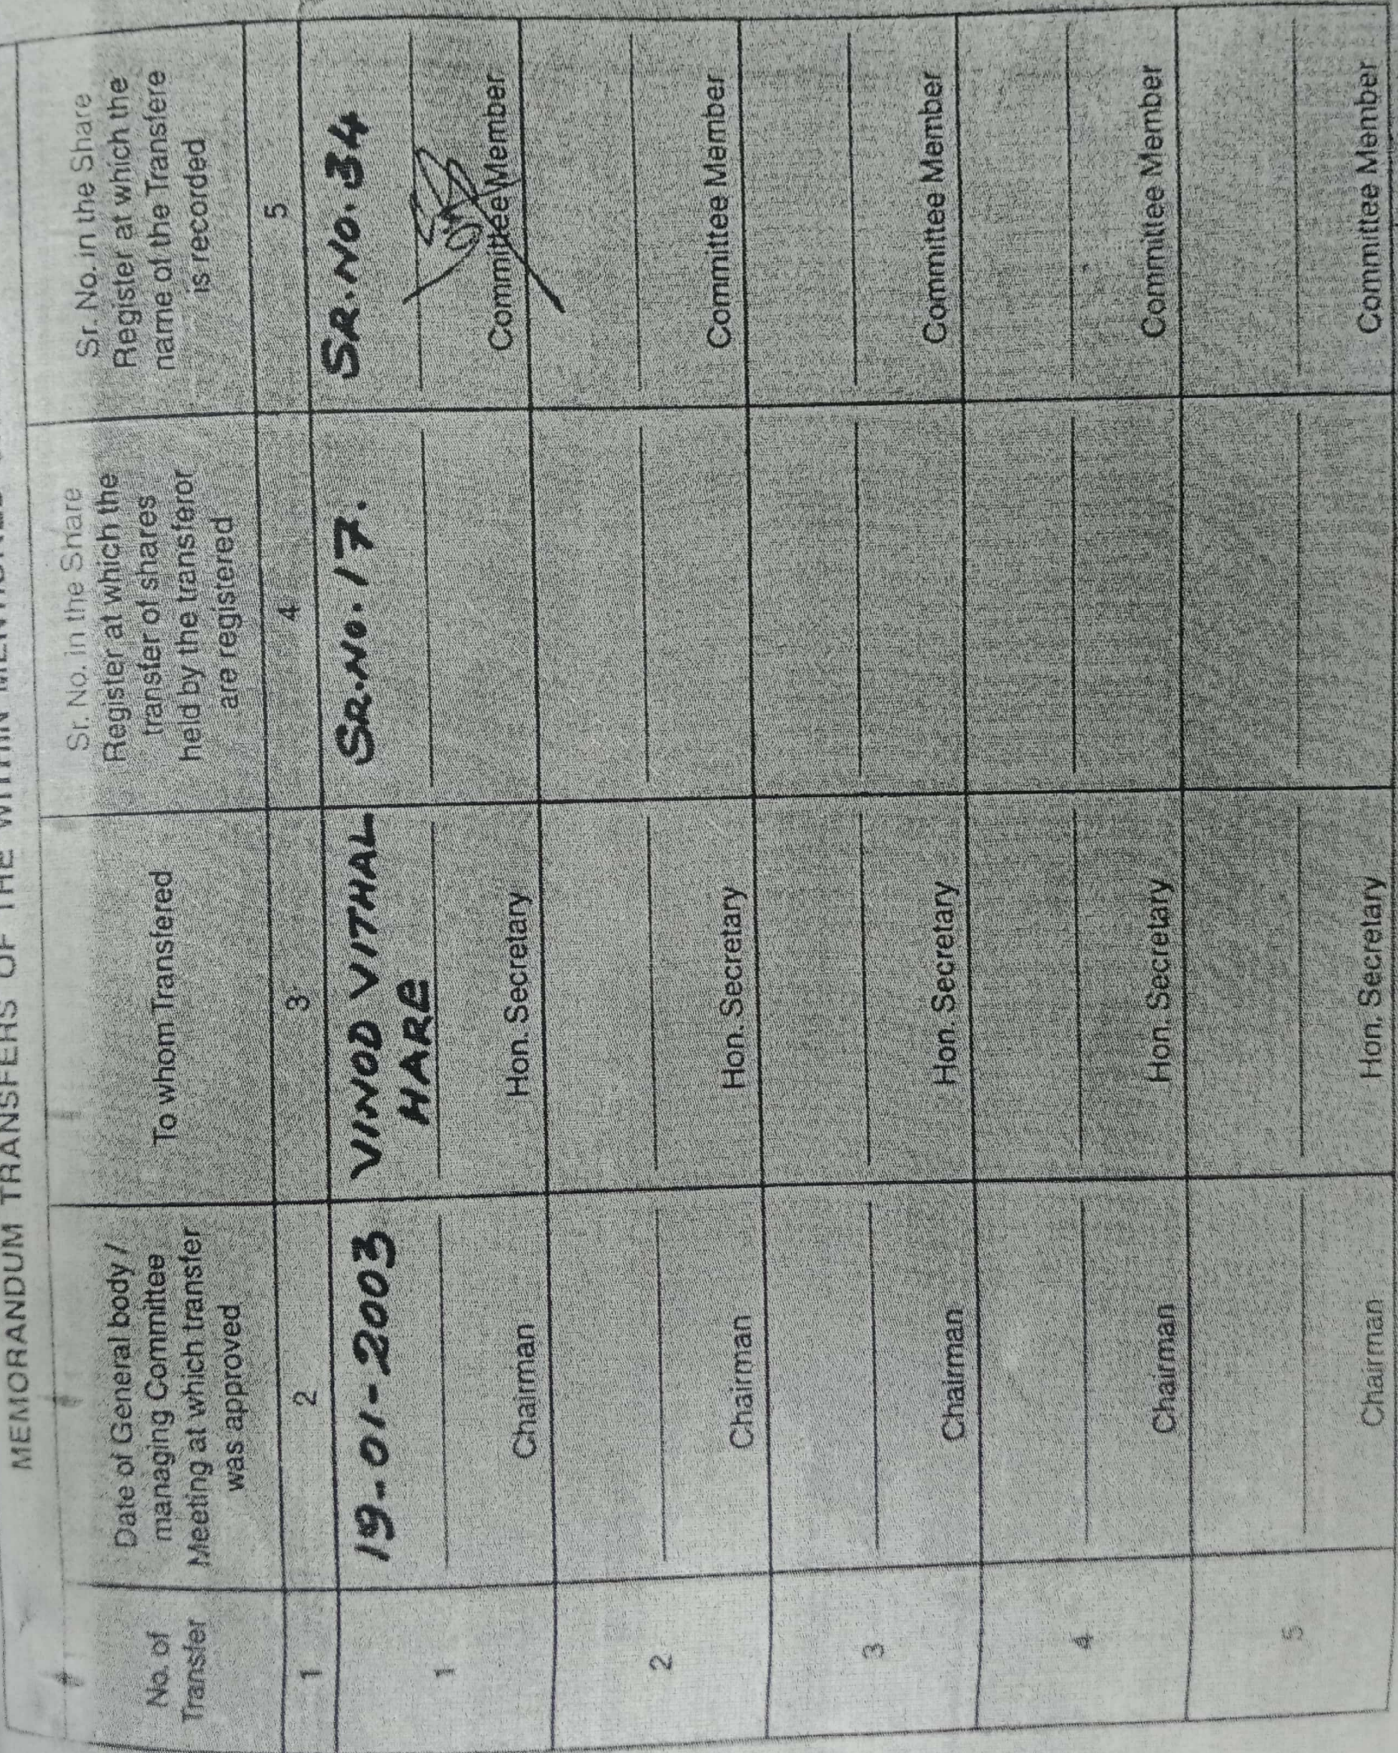 MEMORANDUM TRANSFERS OF THE WITHIN
No. of
Transfer
Date of General body /
managing Committee
Meeting at which transfer
was approved
To whom Transfered
Sr. No. in the Share
Register at which the
transfer of shares
held by the transferor
are registered
Sr. No. in the Share
Register at which the
name of the Transfere
is recorded
1 2 3 4 5
19-01-2003 VINOD VITHAL SR.NO.17. SR.NO.34
HARE
1
Chairman Hon. Secretary Committee Member
2
Chairman Hon. Secretary Committee Member
3
Chairman Hon. Secretary Committee Member
4
Chairman Hon. Secretary Committee Member
5
Chairman Hon. Secretary Committee Member